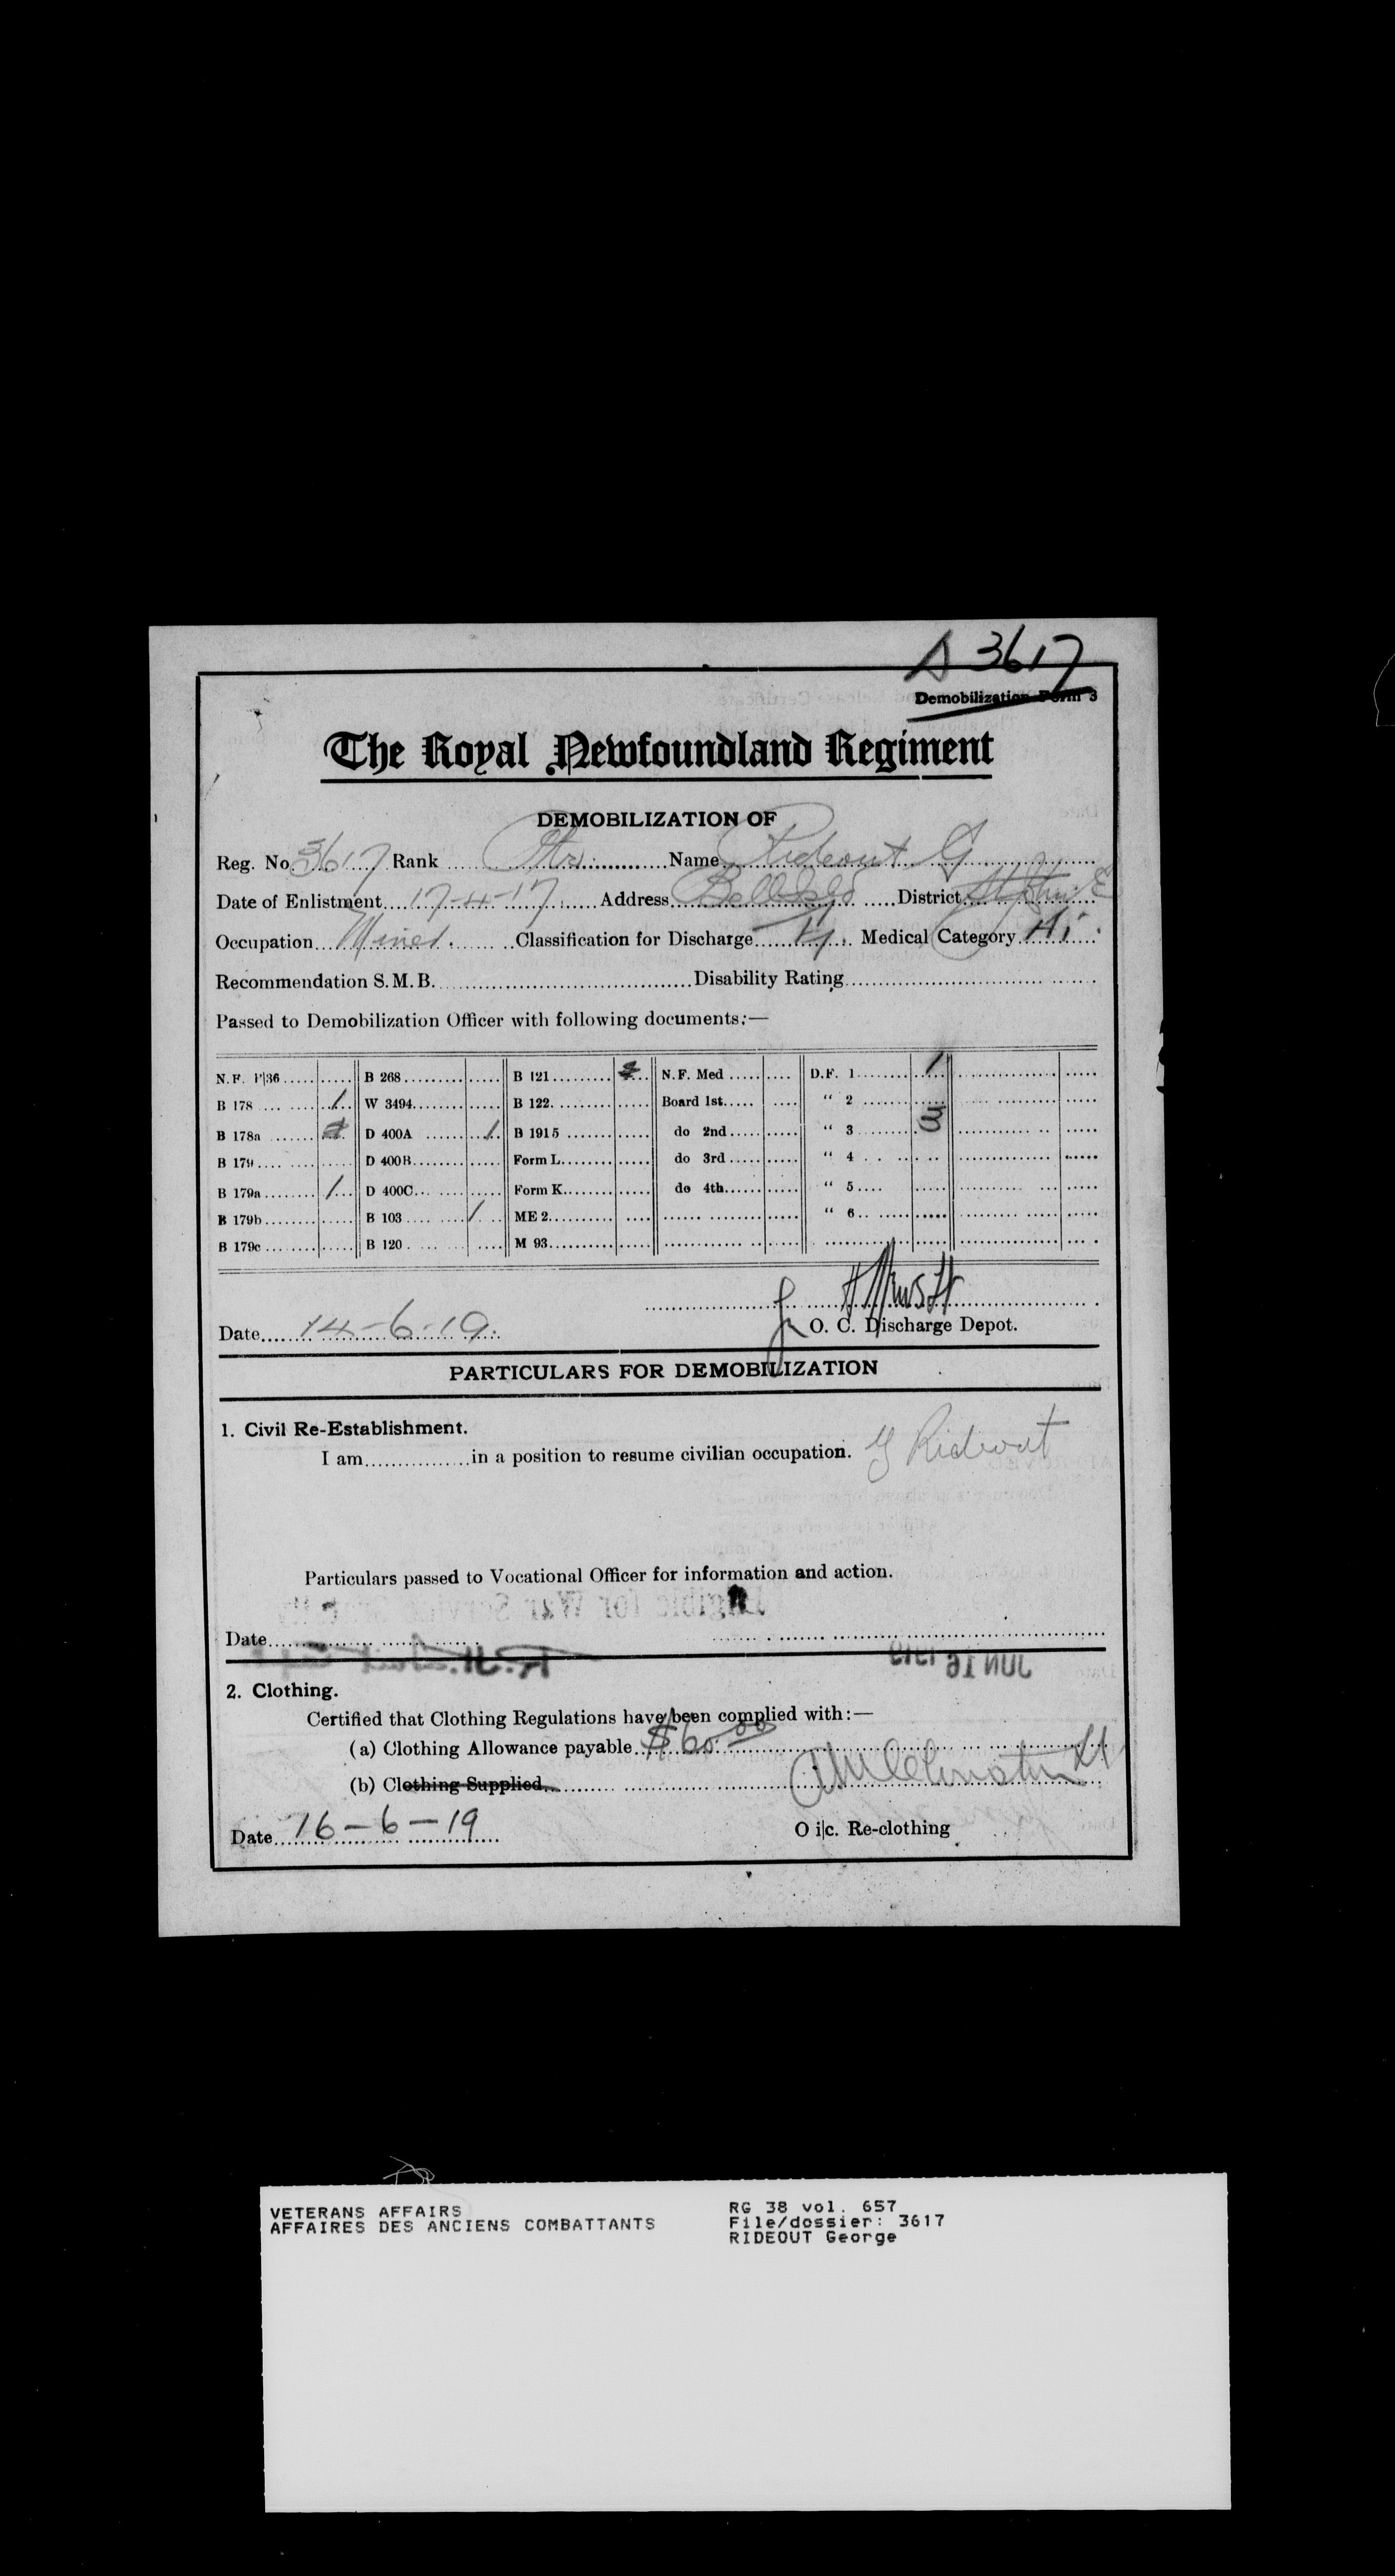 3617
Demobilization Form 3
The Royal Newfoundland Regiment
DEMOBILIZATION OF
Reg. No. 3617 Rank Name Rideout G
Date of Enlistment 17-4-17 Address District St John's E
Occupation Miner Classification for Discharge Medical Category
Recommendation S. M. B. Disability Rating
Passed to Demobilization Officer with following documents:—
N. F. P|36 B 268 B 121 N.F. Med D.F. 1 1
B 178 1 W 3494 B 122 Board 1st " 2
B 178a D 400A 1 B 1915 do 2nd " 3 3
B 179 D 400B Form L do 3rd " 4
B 179a 1 D 400C Form K do 4th " 5
B 179b B 103 1 ME 2 " 6
B 179c B 120 M 93
Date 14-6-19. O. C. Discharge Depot.
PARTICULARS FOR DEMOBILIZATION
1. Civil Re-Establishment.
I am in a position to resume civilian occupation. G Rideout
Particulars passed to Vocational Officer for information and action.
Date
JUN 16 1919
2. Clothing.
Certified that Clothing Regulations have been complied with:—
(a) Clothing Allowance payable $60.00
(b) Clothing Supplied
Date 16-6-19 O i|c. Re-clothing
VETERANS AFFAIRS
AFFAIRES DES ANCIENS COMBATTANTS
RG 38 vol. 657
File/dossier: 3617
RIDEOUT George